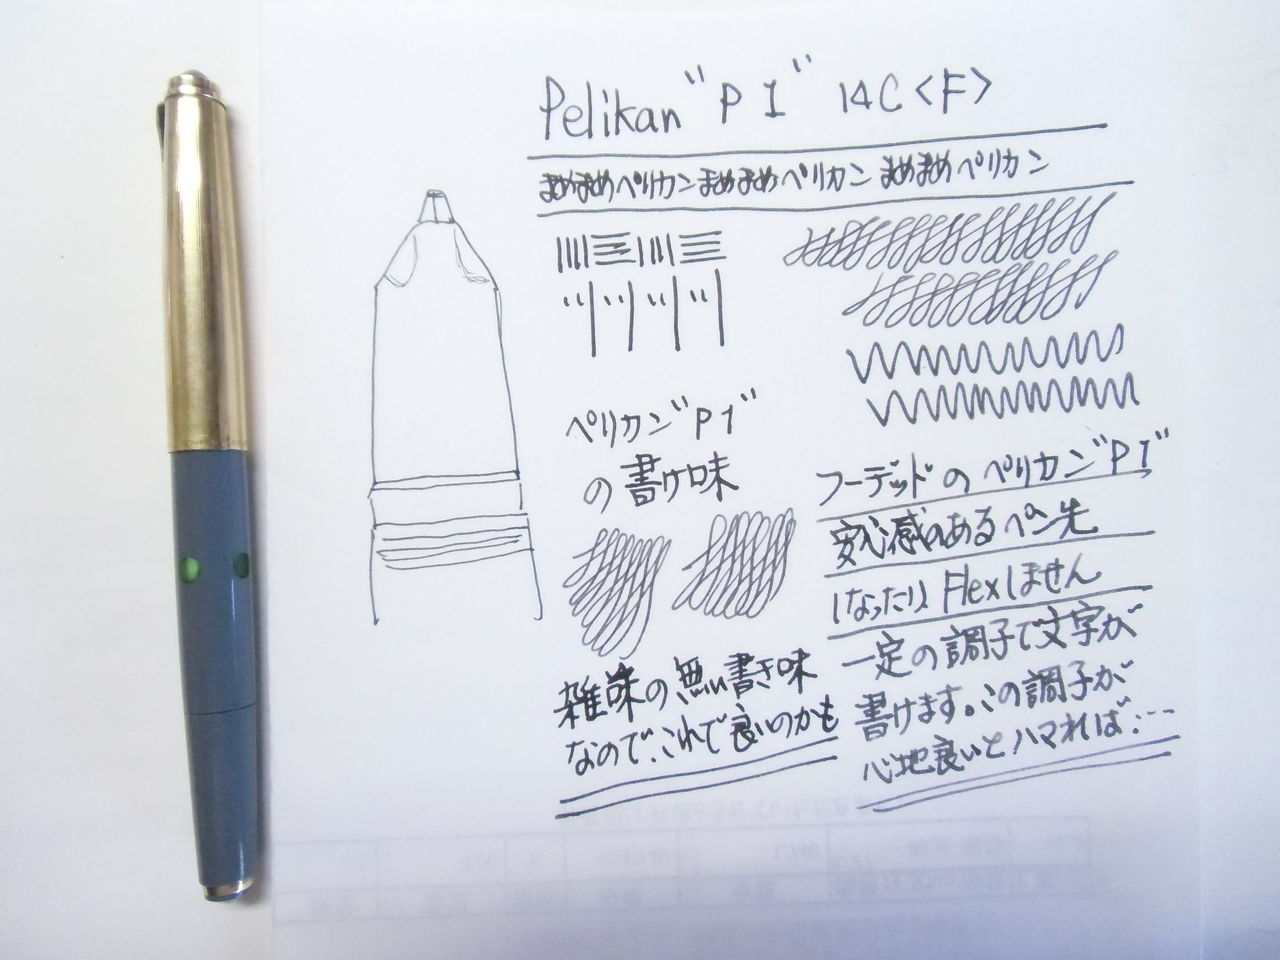 Pelikan "P1" 14C <F>
まめまめペリカンまめまめペリカンまめまめペリカン
ペリカン"P1"
の書け味
雑味の無い書き味
なので、これで良いのかも
フーデッドのペリカン"P1"
安心感のあるペン先
しなったり、Flexしません
一定の調子で文字が
書けます。この調子が
心地良いとハマれば…